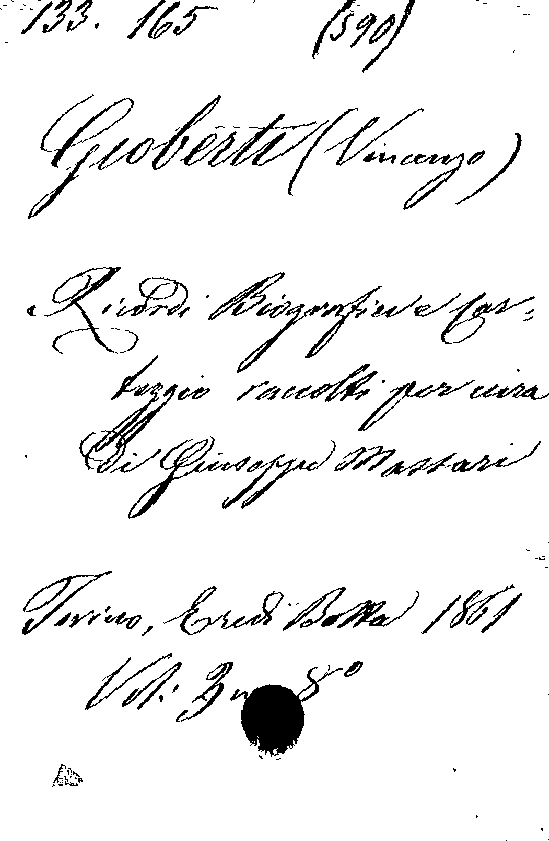 133. 165 (590)
Gioberti (Vincenzo)
Ricordi Biografici e Car-
teggio raccolti per cura
di Giuseppe Massari
Torino, Eredi Botta 1861
Vol: 3 in 8º